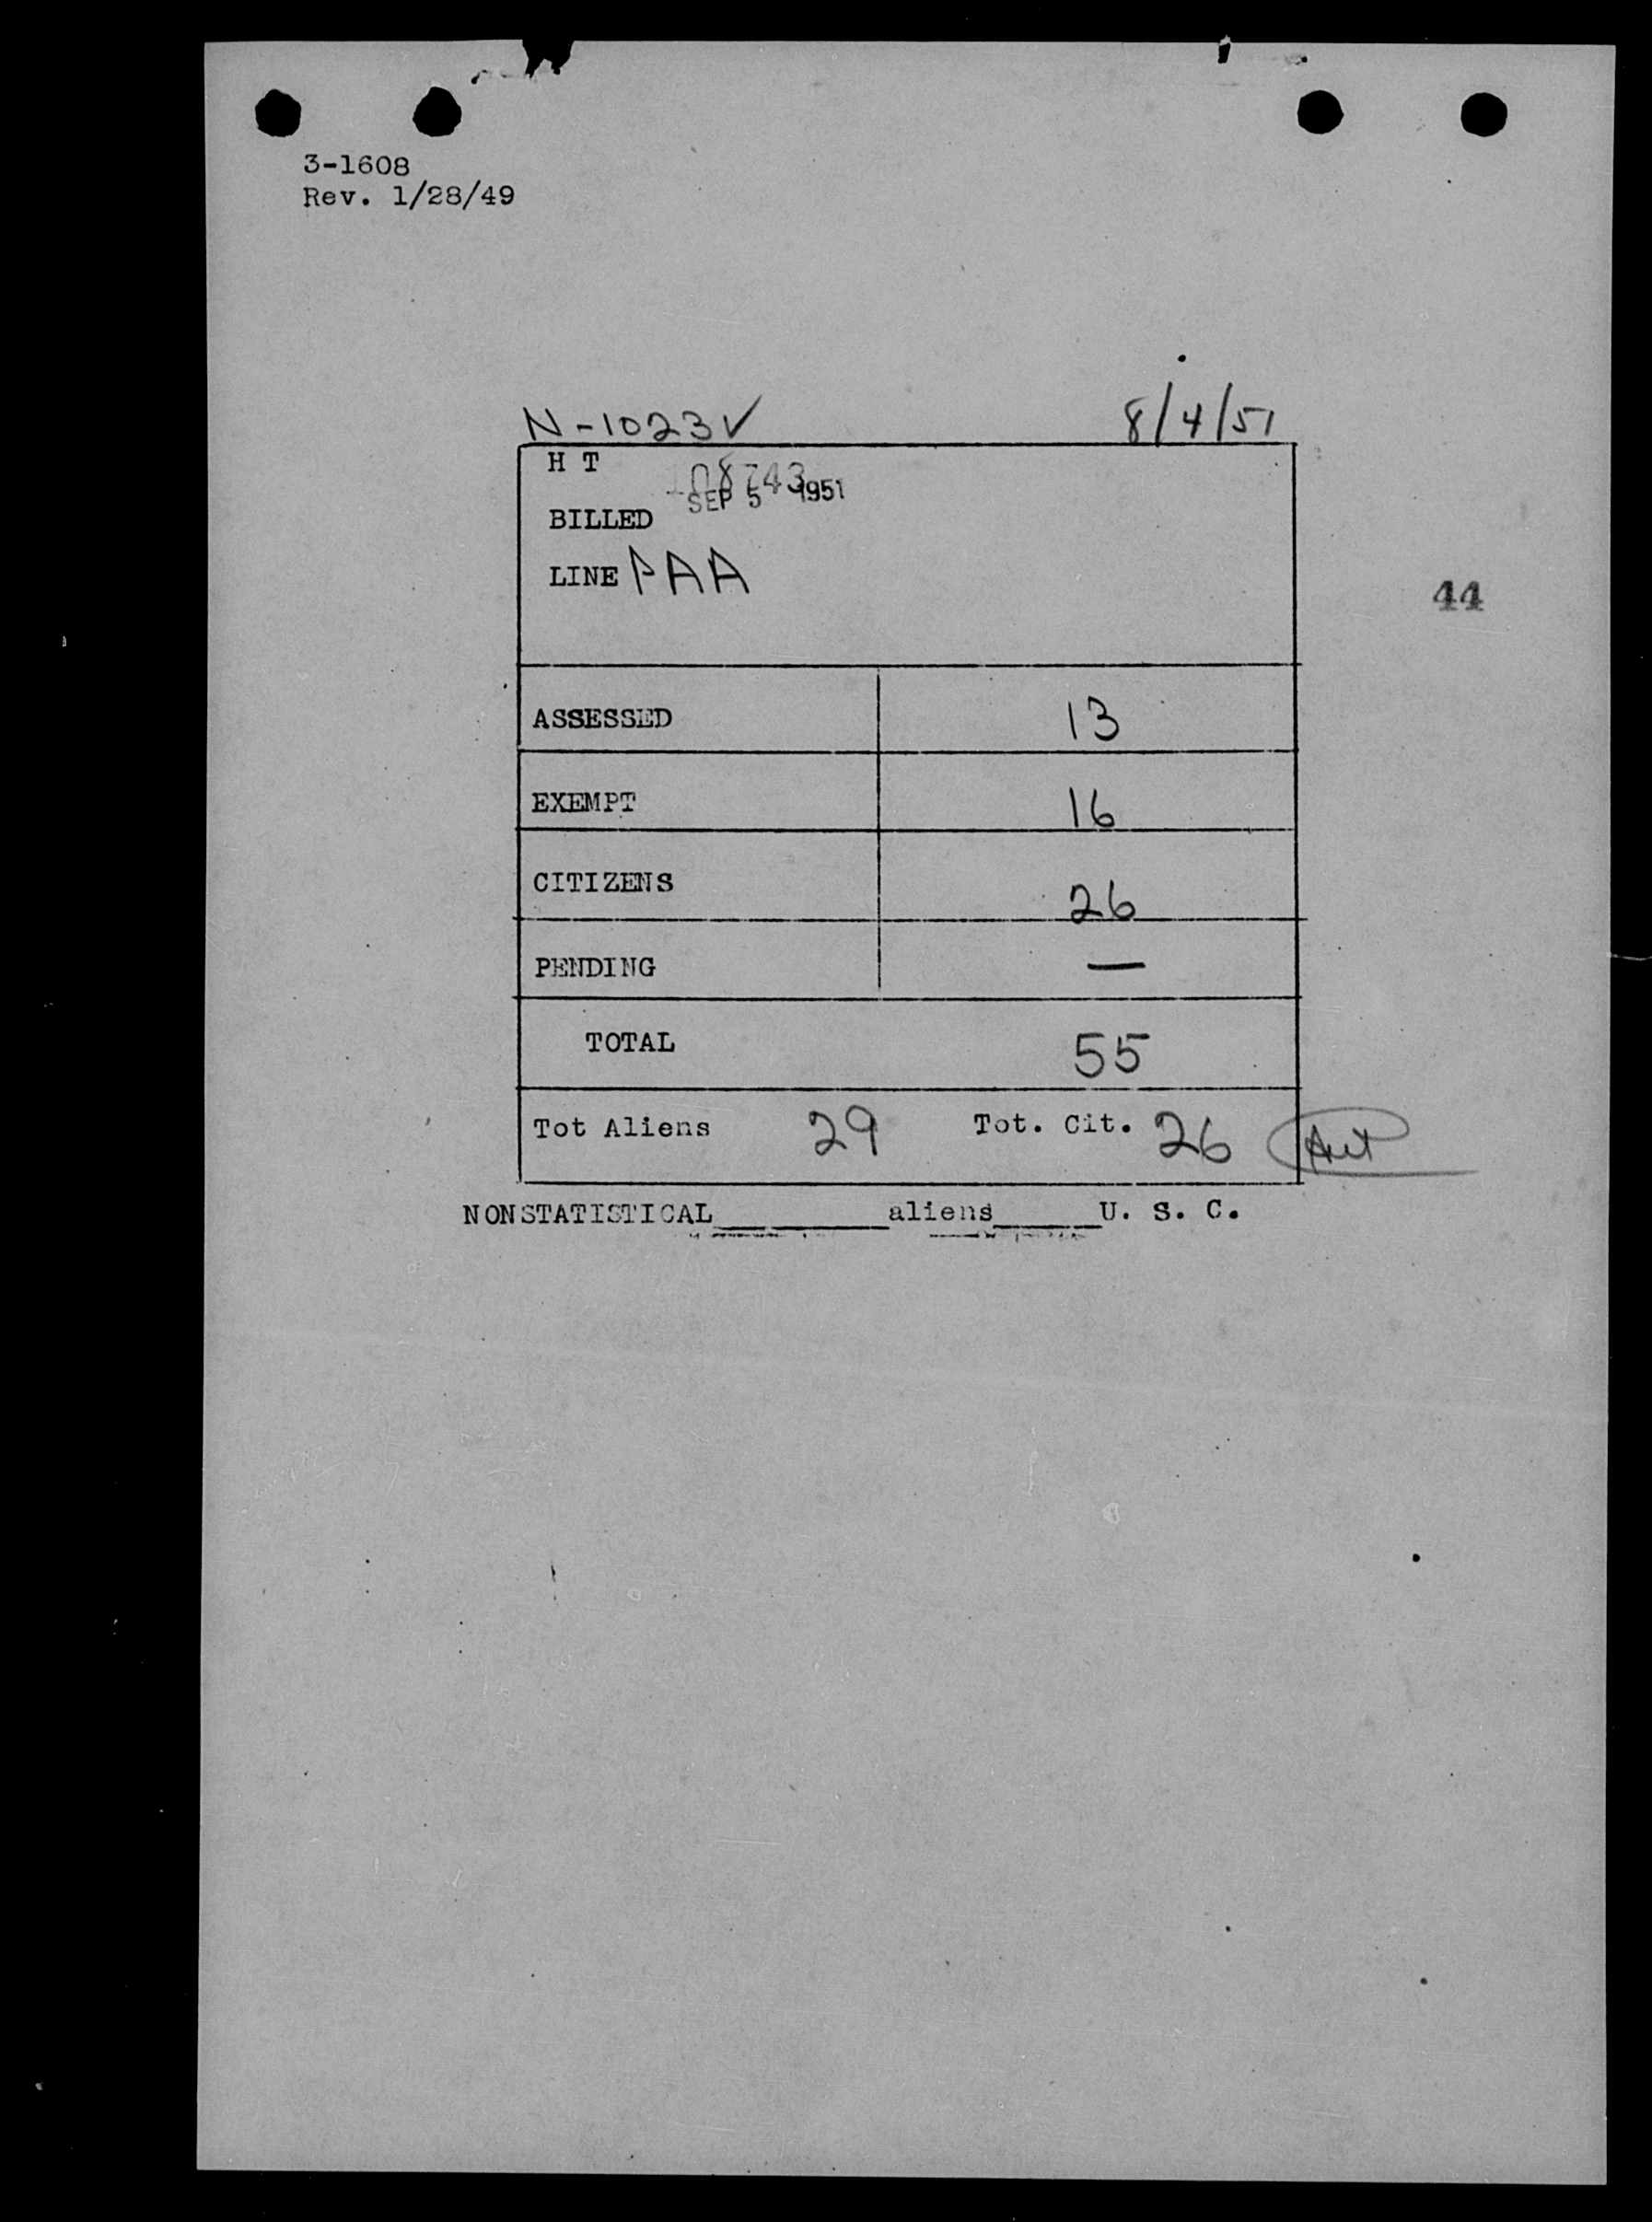 3-1608
Rev. 1/28/49
N-1023✓ 8/4/51
H T 108743
SEP 5 1951
BILLED
LINE PAA
44
ASSESSED 13
EXEMPT 16
CITIZENS 26
PENDING —
TOTAL 55
Tot Aliens 29 Tot. Cit. 26
NONSTATISTICAL__________aliens______U. S. C.